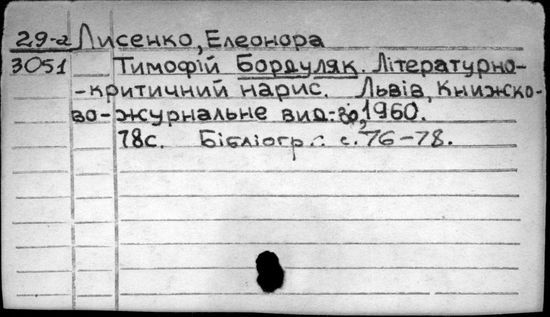 29-а Лисенко, Елеонора
3051 Тимофій Бордуляк. Літературно-
-критичний нарис. Львів, Книжко-
во-журнальне вид-во, 1960.
78с. Бібліогр.: с. 76-78.